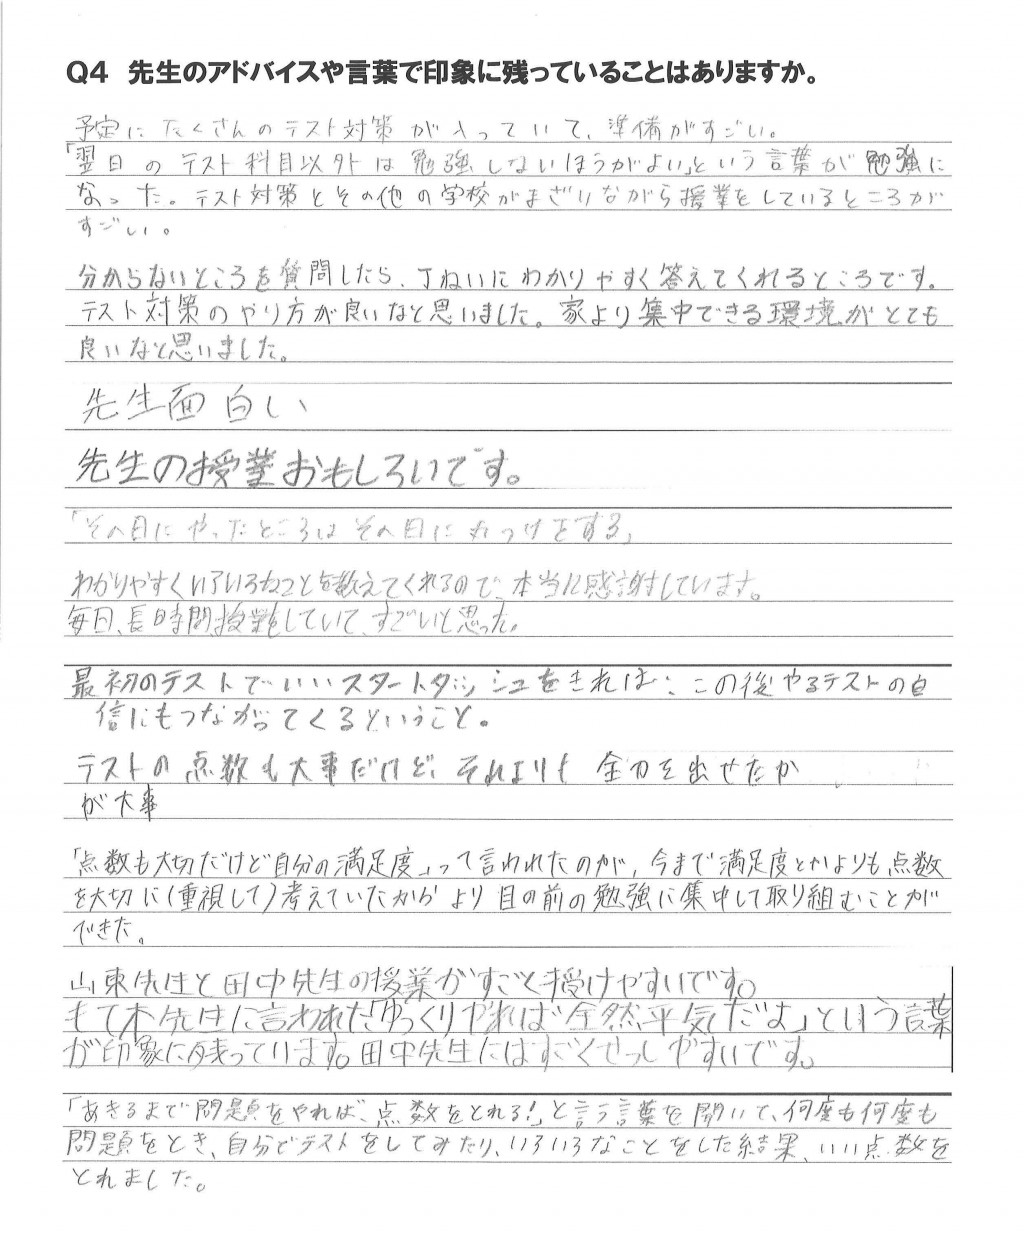 Q4 先生のアドバイスや言葉で印象に残っていることはありますか。
予定にたくさんのテスト対策が入っていて、準備がすごい。
「翌日のテスト科目以外は勉強しないほうがよい」という言葉が勉強に
なった。テスト対策とその他の学校がまざりながら授業をしているところが
すごい。
分からないところを質問したら、丁ねいにわかりやすく答えてくれるところです。
テスト対策のやり方が良いなと思いました。家より集中できる環境がとても
良いなと思いました。
先生面白い
先生の授業おもしろいです。
「その日にやったところはその日に丸つけをする」
わかりやすくいろいろなことを教えてくれるので、本当に感謝しています。
毎日、長時間授業をしていて、すごいと思った。
最初のテストでいいスタートダッシュをきれば、この後やるテストの自
信にもつながってくるということ。
テストの点数も大事だけど、それよりも 全力を出せたか
が大事
「点数も大切だけど自分の満足度」って言われたのが、今まで満足度とかよりも点数
を大切に(重視して)考えていたからより目の前の勉強に集中して取り組むことが
できた。
山東先生と田中先生の授業がすごく授けやすいです。
もて木先生に言われた「ゆっくりやれば全然平気だよ」という言葉
が印象に残っています。田中先生にはすごくせっしやすいです。
「あきるまで問題をやれば、点数をとれる!」と言う言葉を聞いて、何度も何度も
問題をとき、自分でテストをしてみたり、いろいろなことをした結果、いい点数を
とれました。